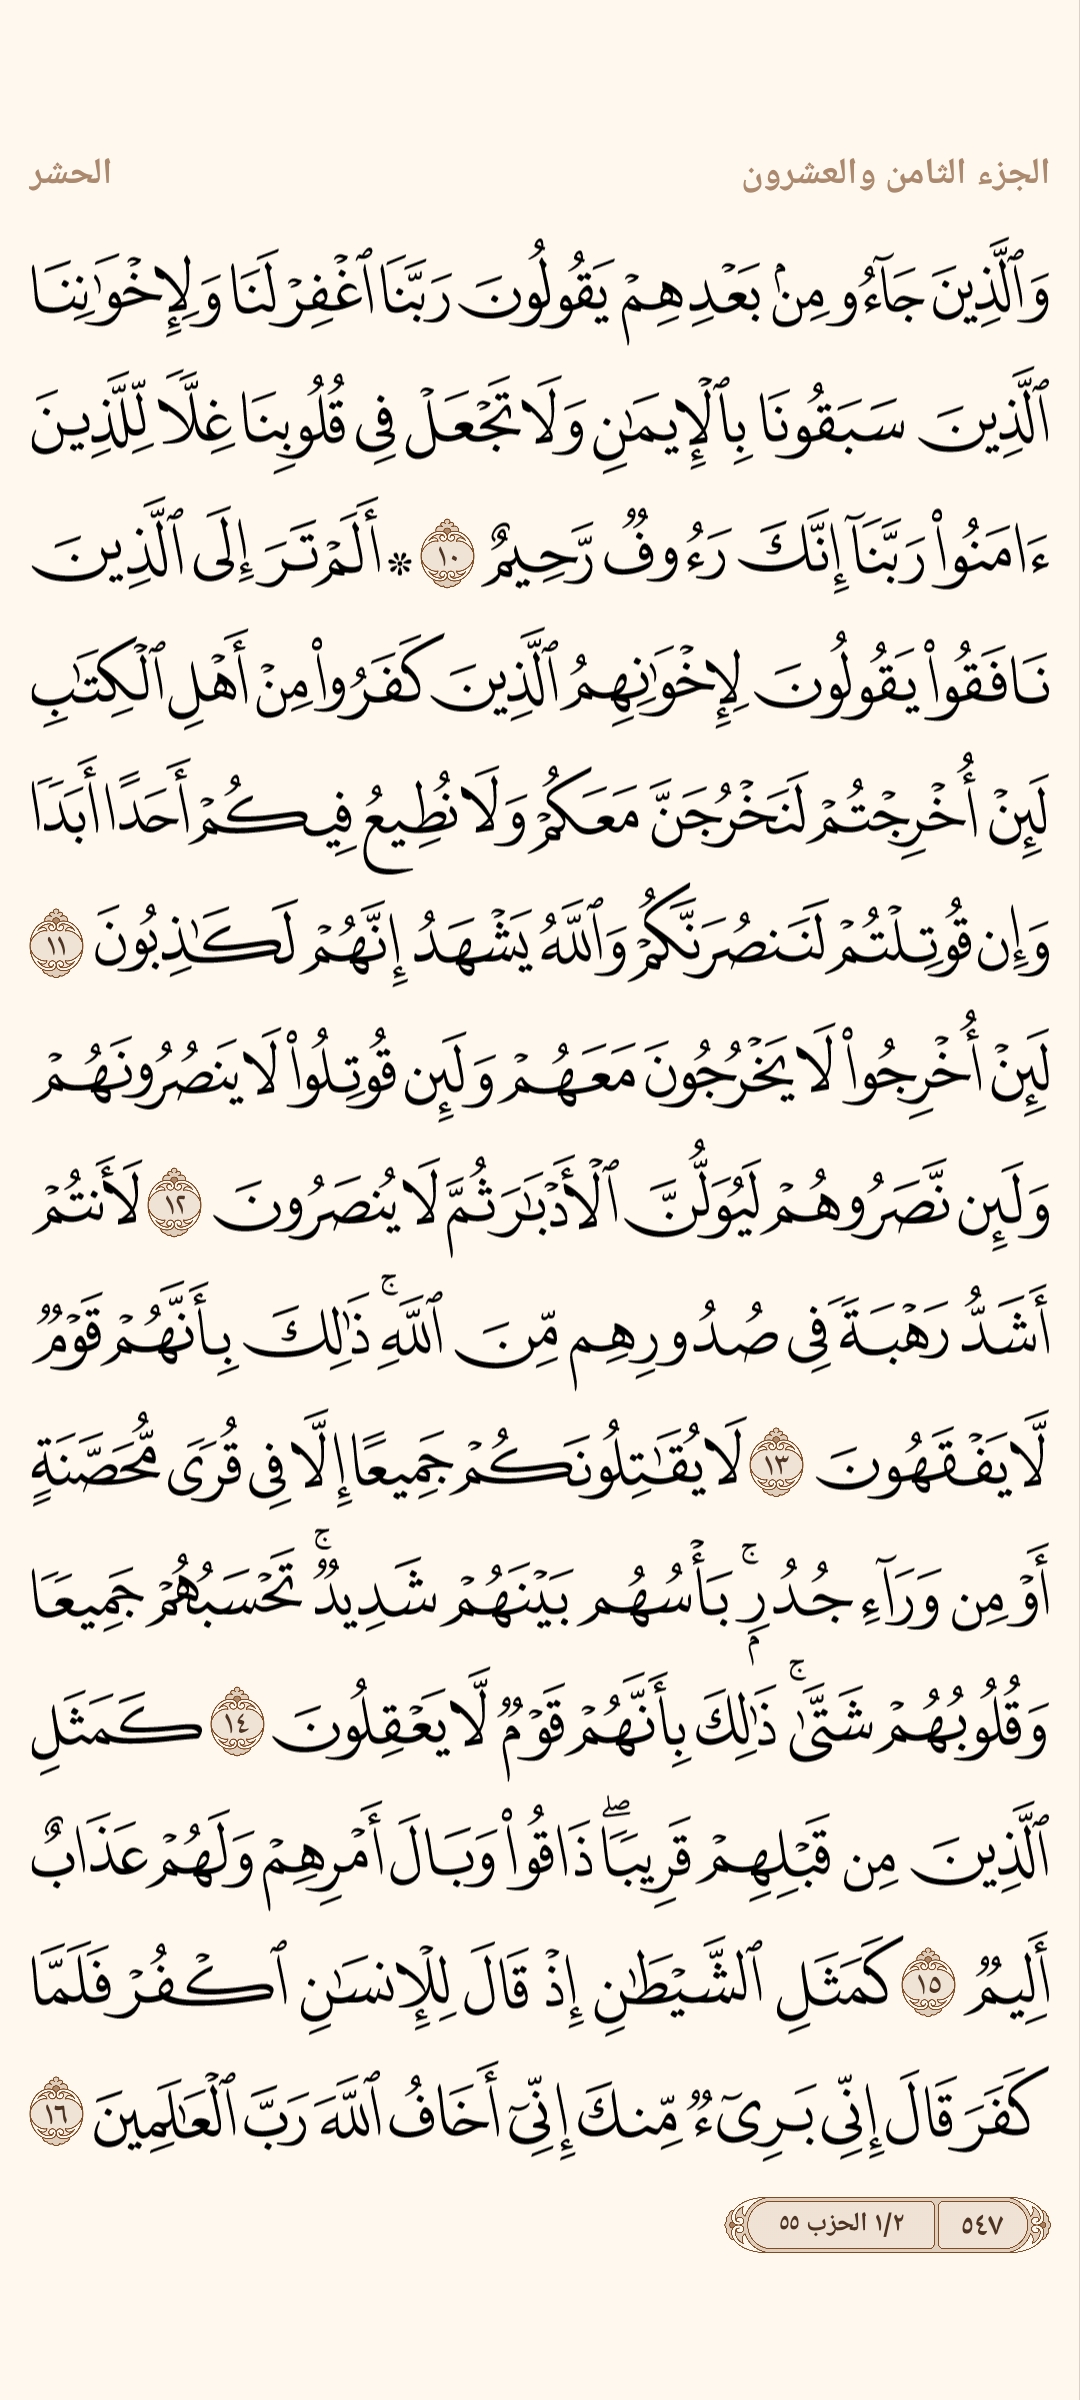 الجزء الثامن والعشرون
الحشر
وَٱلَّذِينَ جَآءُو مِنۢ بَعۡدِهِمۡ يَقُولُونَ رَبَّنَا ٱغۡفِرۡ لَنَا وَلِإِخۡوَٰنِنَا
ٱلَّذِينَ سَبَقُونَا بِٱلۡإِيمَٰنِ وَلَا تَجۡعَلۡ فِي قُلُوبِنَا غِلّٗا لِّلَّذِينَ
ءَامَنُواْ رَبَّنَآ إِنَّكَ رَءُوفٞ رَّحِيمٌ ١٠ ۞ أَلَمۡ تَرَ إِلَى ٱلَّذِينَ
نَافَقُواْ يَقُولُونَ لِإِخۡوَٰنِهِمُ ٱلَّذِينَ كَفَرُواْ مِنۡ أَهۡلِ ٱلۡكِتَٰبِ
لَئِنۡ أُخۡرِجۡتُمۡ لَنَخۡرُجَنَّ مَعَكُمۡ وَلَا نُطِيعُ فِيكُمۡ أَحَدًا أَبَدٗا
وَإِن قُوتِلۡتُمۡ لَنَنصُرَنَّكُمۡ وَٱللَّهُ يَشۡهَدُ إِنَّهُمۡ لَكَٰذِبُونَ ١١
لَئِنۡ أُخۡرِجُواْ لَا يَخۡرُجُونَ مَعَهُمۡ وَلَئِن قُوتِلُواْ لَا يَنصُرُونَهُمۡ
وَلَئِن نَّصَرُوهُمۡ لَيُوَلُّنَّ ٱلۡأَدۡبَٰرَ ثُمَّ لَا يُنصَرُونَ ١٢ لَأَنتُمۡ
أَشَدُّ رَهۡبَةٗ فِي صُدُورِهِم مِّنَ ٱللَّهِۚ ذَٰلِكَ بِأَنَّهُمۡ قَوۡمٞ
لَّا يَفۡقَهُونَ ١٣ لَا يُقَٰتِلُونَكُمۡ جَمِيعًا إِلَّا فِي قُرٗى مُّحَصَّنَةٍ
أَوۡ مِن وَرَآءِ جُدُرِۭۚ بَأۡسُهُم بَيۡنَهُمۡ شَدِيدٞۚ تَحۡسَبُهُمۡ جَمِيعٗا
وَقُلُوبُهُمۡ شَتَّىٰۚ ذَٰلِكَ بِأَنَّهُمۡ قَوۡمٞ لَّا يَعۡقِلُونَ ١٤ كَمَثَلِ
ٱلَّذِينَ مِن قَبۡلِهِمۡ قَرِيبٗاۖ ذَاقُواْ وَبَالَ أَمۡرِهِمۡ وَلَهُمۡ عَذَابٌ
أَلِيمٞ ١٥ كَمَثَلِ ٱلشَّيۡطَٰنِ إِذۡ قَالَ لِلۡإِنسَٰنِ ٱكۡفُرۡ فَلَمَّا
كَفَرَ قَالَ إِنِّي بَرِيٓءٞ مِّنكَ إِنِّيٓ أَخَافُ ٱللَّهَ رَبَّ ٱلۡعَٰلَمِينَ ١٦
٥٤٧ ١/٢ الحزب ٥٥